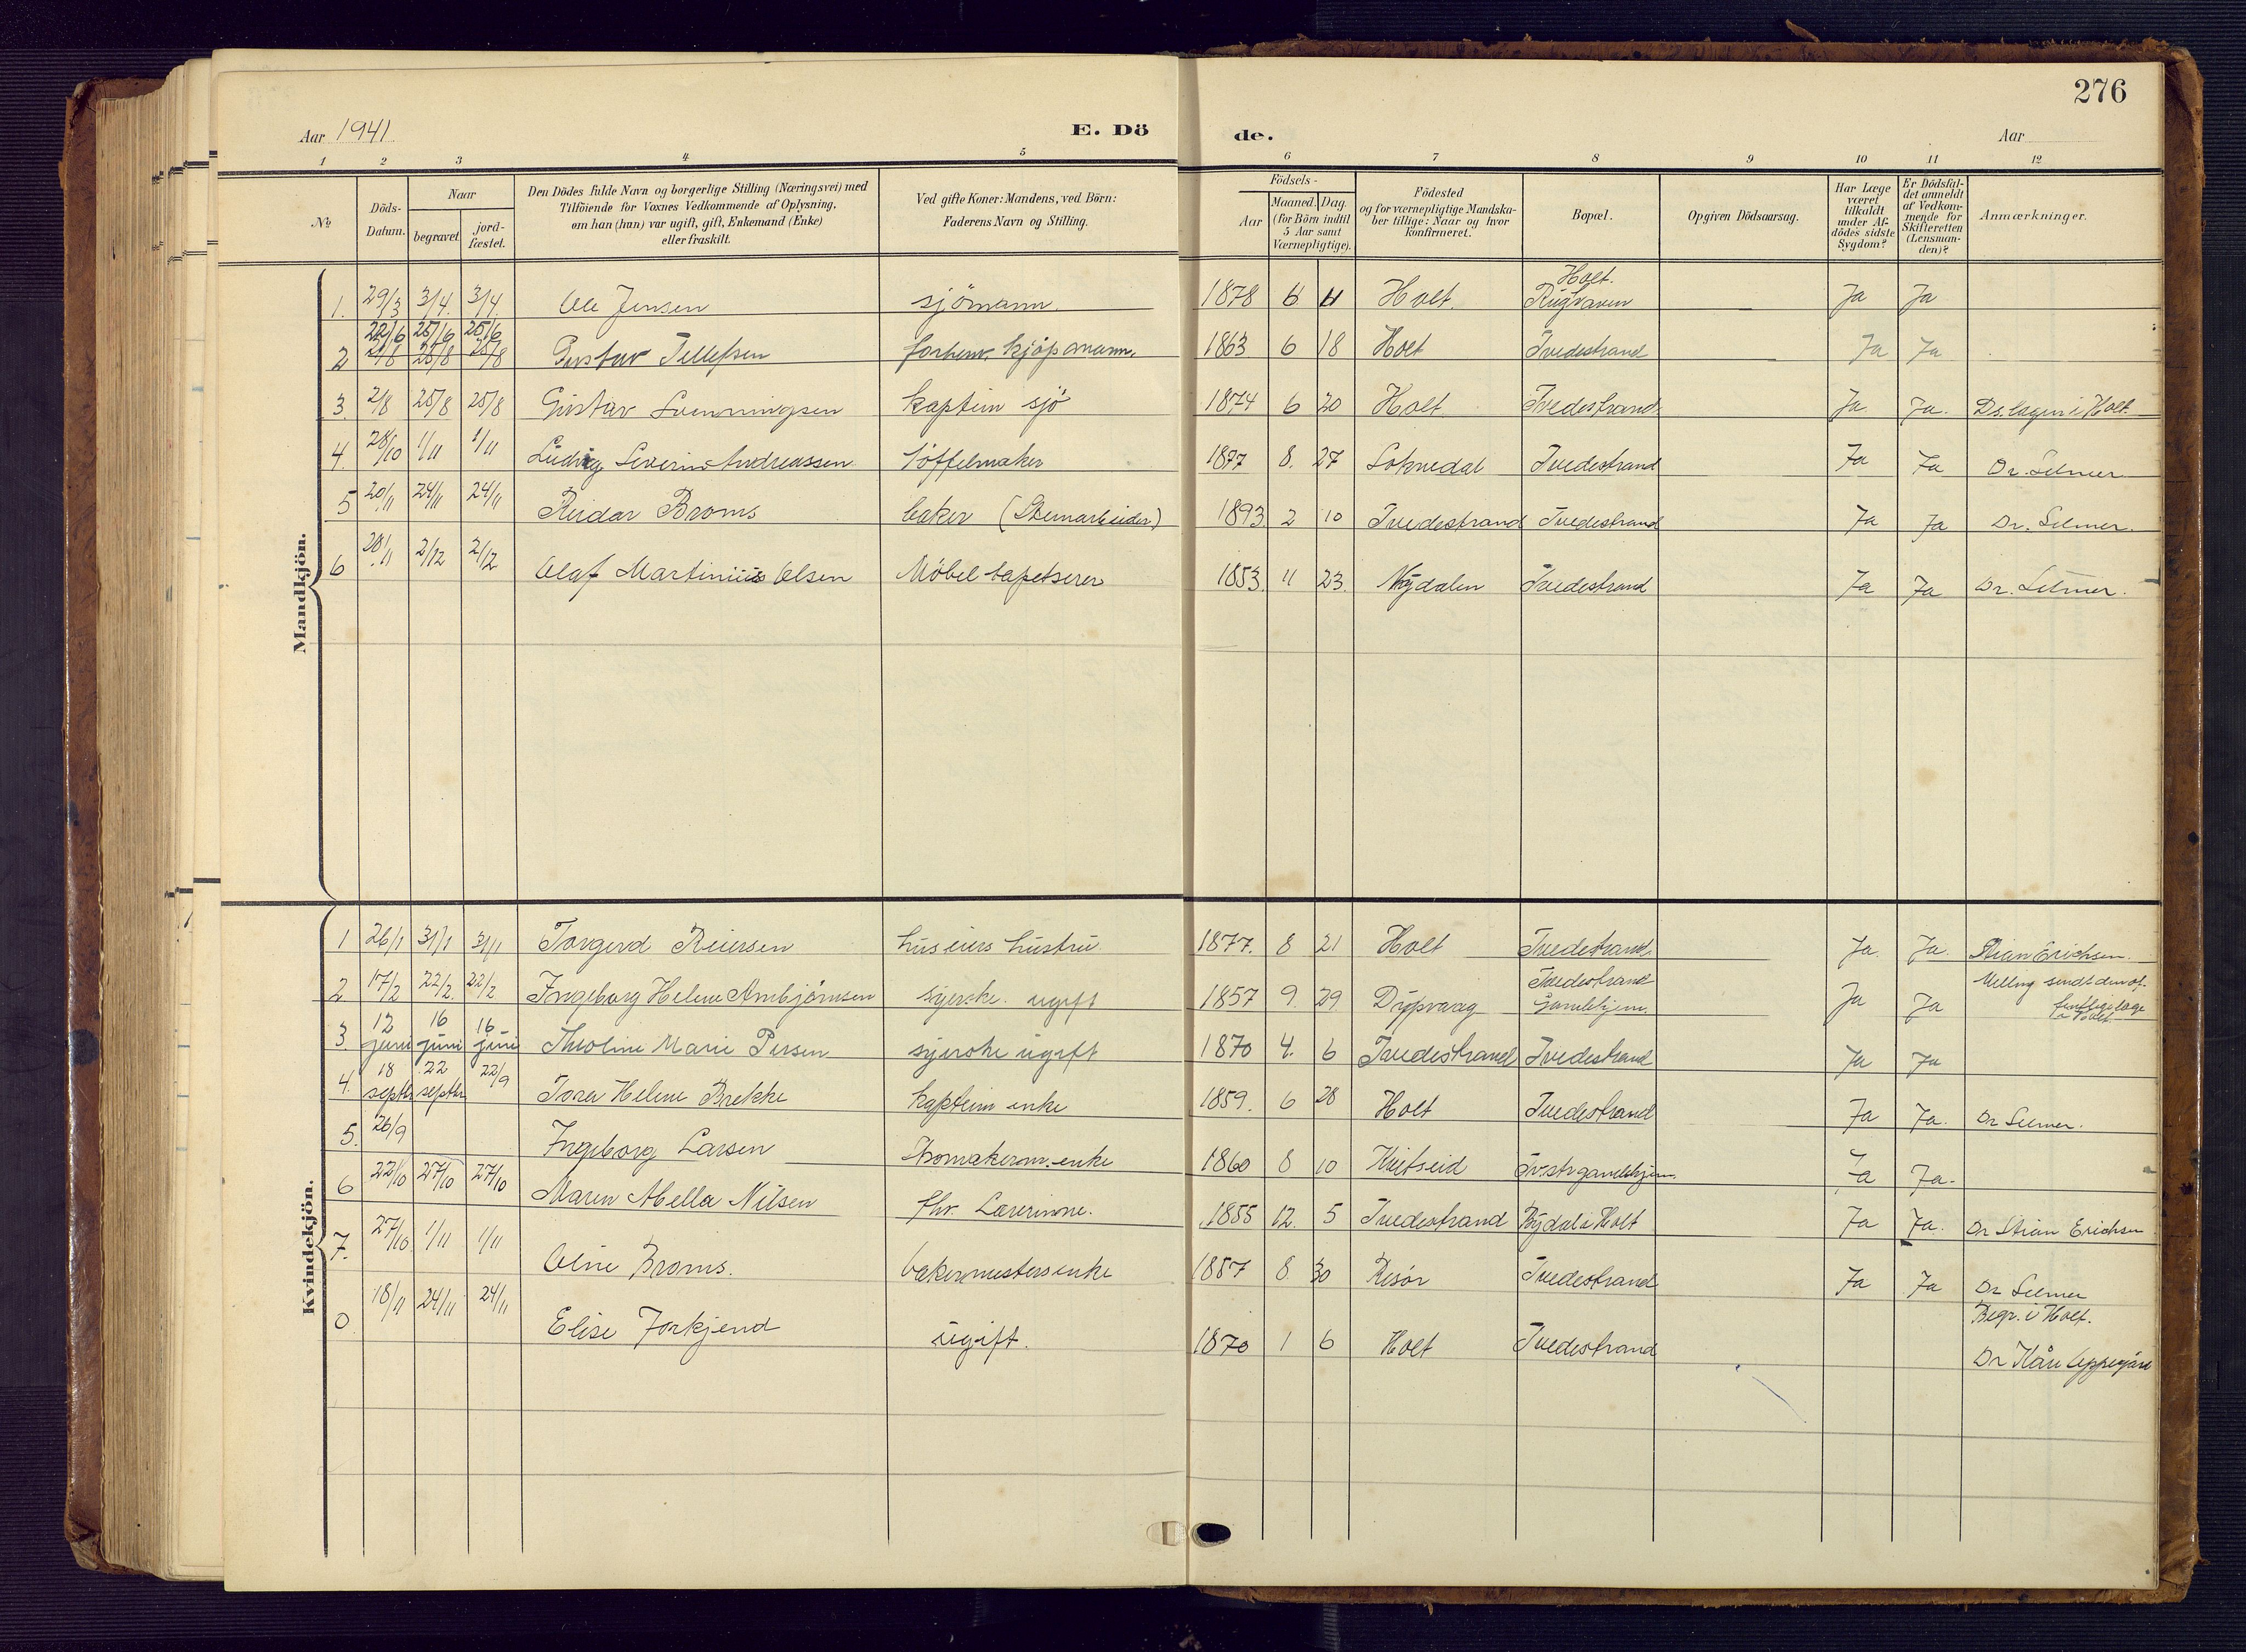 276
Aar 1941
E. Dö
de.
Aar
1 2 3 4 5 6 7 8 9 10 11 12
No
Döds-Datum.
Naar
begravet.
jord-fæstet.
Den Dödes fulde Navn og borgerlige Stilling (Næringsvei) med
Tilföiende for Voxnes Vedkommende af Oplysning,
om han (hun) var ugift, gift, Enkemand (Enke)
eller fraskilt.
Ved gifte Koner: Mandens, ved Börn:
Faderens Navn og Stilling.
Födsels-
Aar
Maaned. Dag.
(for Börn indtil
5 Aar samt
Værnepligtige).
Födested
og for værnepligtige Mandska-
ber tillige: Naar og hvor
konfirmeret.
Bopæl.
Opgiven Dödsaarsag.
Har Læge
været
tilkaldt
under Af-
dödes sidste
Sygdom?
Er Dödsfal-
det anmeldt
af Vedkom-
mende for
Skifteretten
(Lensman-
den)?
Anmærkninger.
Mandkjön.
1. 29/3 3/4. 3/4. Ole Jensen sjömann. 1878 6 4 Holt. Holt. Ja Ja
22/6 25/6 25/6
2 21/8 25/8 25/8 Gustav Tellefsen forhenv. kjöpmann. 1863 6 18 Holt Tvedestrand Ja Ja
3. 2/8 25/8 25/8 Gustav Svenningsen kaptein sjö 1874 6 20 Holt Tvedestrand Ja Ja. i Holt
4. 28/10 1/11 1/11 Ludvig Severin Andreassen töffelmaker 1877 8. 27 Soknedal Tvedestrand Ja Ja Dr. Selmer
5 20/11 24/11 24/11 Reidar Broms baker (Stenarbeider) 1893 2 10 Tvedestrand Tvedestrand Ja Ja Dr. Selmer.
6 28/11 2/12 2/12 Olaf Martinius Olsen Möbeltapetserer 1853. 11 23. Nydalen Tvedestrand Ja Ja Dr. Selmer.
Kvindekjön.
1 26/1 31/1 31/1 Torgerd Reiersen huseiers hustru. 1877. 8 21 Holt Tvedestrand. Ja. Ja. Stian Erichsen.
2 17/2 22/2. 22/2 Ingeborg Helene Ambjörnsen syerske. ugift 1857 9. 29. Dypvaag Tvedestrand Gamlehjem. Ja Ja
3. 12 juni 16 juni 16 juni Theoline Marie Persen syerske ugift 1870 4. 6 Tvedestrand Tvedestrand Ja Ja
4. 18 septbr 22 septbr 22/9 Tora Helene Brekke kaptein enke 1859. 6 28 Holt Tvedestrand Ja Ja. Dr Selmer.
5. 26/9 Ingeborg Larsen Skomakerm. enke 1860 8 10 Kvitseid Tv.str gamlehjem. Ja Ja.
6 22/10 27/10 27/10 Maren Abella Nilsen fhv. Lærerinne. 1855 12. 5 Tvedestrand Bydal i Holt Ja Ja. Dr Stian Erichsen
7. 27/10. 1/11 1/11 Oline Broms. bakermesters enke 1857 8. 30 Risör Tvedestrand Ja Ja Dr Selmer
Begr. i Holt.
0 18/11 24/11 24/11 Elise Forkjend ugift. 1870 1 6 Holt Tvedestrand Dr Kåre